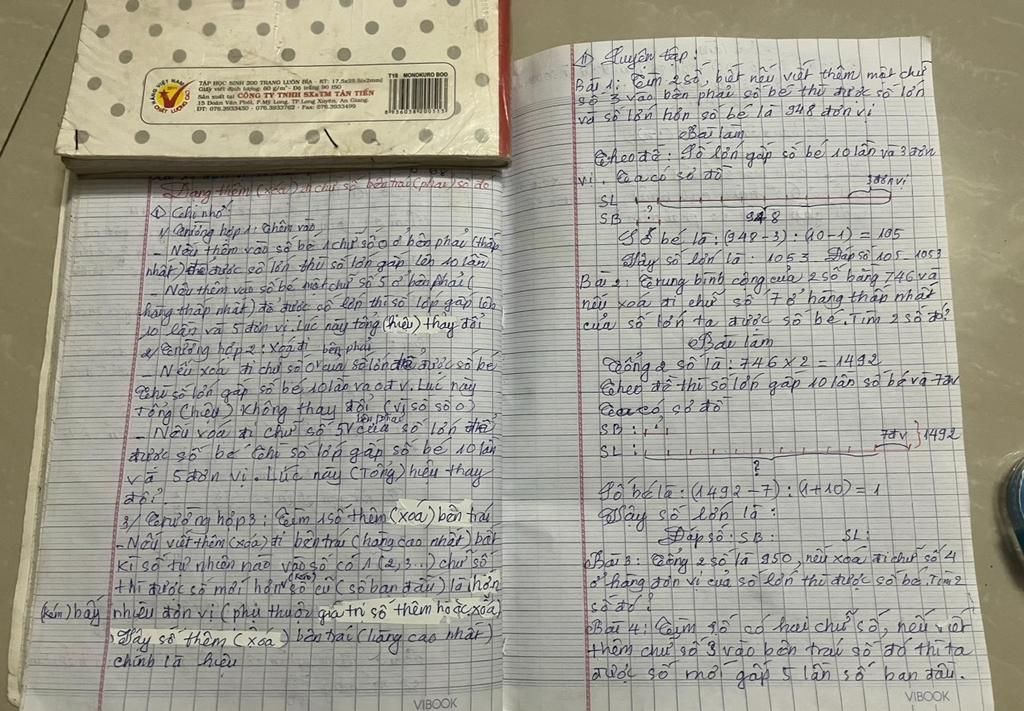 HÀNG VIỆT NAM
CHẤT LƯỢNG
TẬP HỌC SINH 200 TRANG LUÔN BÌA - KT: 17.5x25.5(±2mm)
Giấy viết định lượng: 60 g/m² - Độ trắng 90 ISO
Sản xuất tại CÔNG TY TNHH SX&TM TÂN TIẾN
15 Đoàn Văn Phối, P.Mỹ Long, TP.Long Xuyên, An Giang.
ĐT: 076.3933430 - 076.3933762 - Fax: 076.3933499
T18 MONOKURO BOO
8 936038 200313
Dạng thêm (xoá) đi chữ số bên trái (phải) số đó
I Ghi nhớ:
1/ Trường hợp 1: Thêm vào
- Nếu thêm vào số bé 1 chữ số 0 ở bên phải (thấp
nhất) để được số lớn thì số lớn gấp lên 10 lần
- Nếu thêm vào số bé một chữ số 5 ở bên phải (
hàng thấp nhất) để được số lớn thì số lớn gấp lên
10 lần và 5 đơn vị. Lúc này tổng (hiệu) thay đổi
2/ Trường hợp 2: Xoá đi bên phải
- Nếu xoá đi chữ số 0 của số lớn để được số bé
thì số lớn gấp số bé 10 lần và 0 đv. Lúc này
Tổng (hiệu) không thay đổi (vì số số 0)
- Nếu xoá đi chữ số 5 bên phải của số lớn để
được số bé thì số lớn gấp số bé 10 lần
và 5 đơn vị. Lúc này (Tổng) hiệu thay
đổi
3/ Trường hợp 3: Tìm 1 số thêm (xoá) bên trái
- Nếu viết thêm (xoá) đi bên trái (hàng cao nhất) bất
kì số tự nhiên nào vào số có 1 (2, 3..) chữ số
thì được số mới hơn (kém) số cũ (số ban đầu) là hơn
(kém) bấy nhiêu đơn vị (phụ thuộc giá trị số thêm hoặc xoá)
Vậy số thêm (xoá) bên trái (hàng cao nhất)
chính là hiệu
VIBOOK
II Luyện tập:
Bài 1: Tìm 2 số, biết nếu viết thêm một chữ
số 3 vào bên phải số bé thì được số lớn
và số lớn hơn số bé là 948 đơn vị
Bài làm
Theo đề: Số lớn gấp số bé 10 lần và 3 đơn
vị. Ta có sơ đồ
3 đơn vị
SL
SB ? 948
Số bé là: (948 - 3) : (10 - 1) = 105
Vậy số lớn là: 1053 Đáp số 105, 1053
Bài 2: Trung bình cộng của 2 số bằng 746 và
nếu xoá đi chữ số 7 ở hàng thấp nhất
của số lớn ta được số bé. Tìm 2 số đó?
Bài làm
Tổng 2 số là: 746 x 2 = 1492
Theo đề thì số lớn gấp 10 lần số bé và 7 đv
Ta có sơ đồ
SB : ?
SL : 7 đv 1492
?
Số bé là: (1492 - 7) : (1 + 10) = 1
Vậy số lớn là :
Đáp số : SB : SL :
Bài 3: Tổng 2 số là 950, nếu xoá đi chữ số 4
ở hàng đơn vị của số lớn thì được số bé. Tìm 2
số đó?
Bài 4: Tìm số có hai chữ số, nếu viết
thêm chữ số 3 vào bên trái số đó thì ta
được số mới gấp 5 lần số ban đầu.
VIBOOK